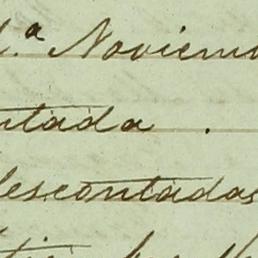 1.ª Noviem
ntada .
descontadas